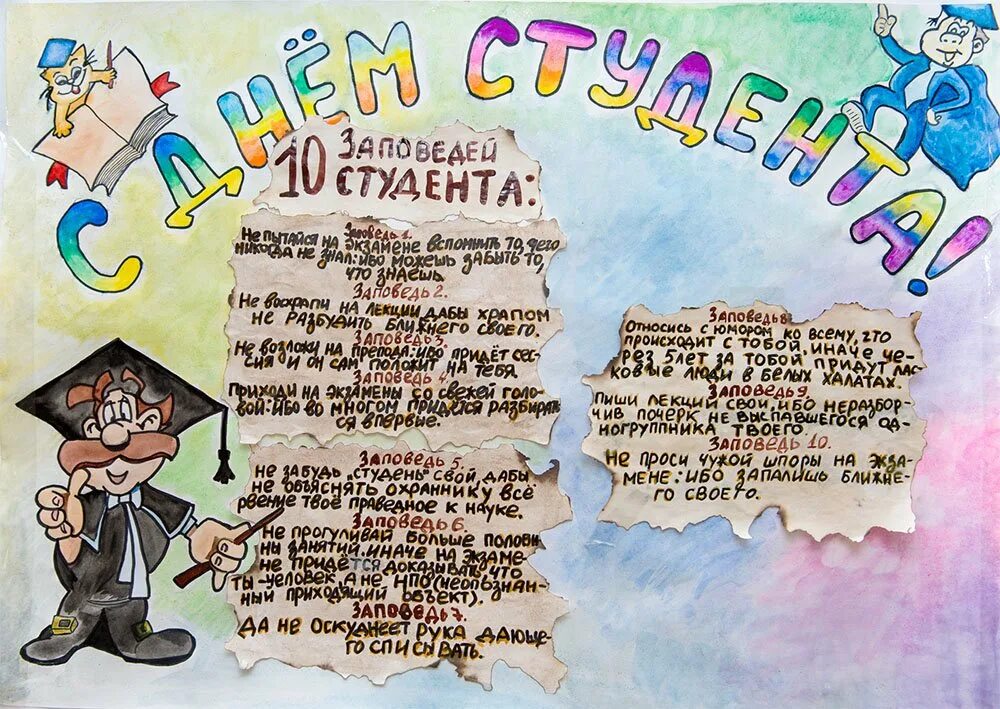 С ДНЁМ СТУДЕНТА!
10 ЗАПОВЕДЕЙ
СТУДЕНТА:
Заповедь 1.
Не пытайся на экзамене вспомнить то, чего
никогда не знал: ибо можешь забыть то,
что знаешь.
Заповедь 2.
Не всхрапи на лекции, дабы храпом
не разбудить ближнего своего.
Заповедь 3.
Не возложи на препода: ибо придёт сес-
сия и он сам положит на тебя.
Заповедь 4.
Приходи на экзамены со свежей голо-
вой: ибо во многом придётся разбирать
ся впервые.
Заповедь 5.
Не забудь „студень" свой, дабы
не объяснять охраннику всё
рвение твоё праведное к науке.
Заповедь 6.
Не прогуливай больше полови
ны занятий, иначе на экзаме-
не придётся доказывать, что
ты - человек, а не НПО (неопознан-
ный приходящий объект).
Заповедь 7.
Да не оскудеет рука дающе-
го списывать.
Заповедь 8.
Относись с юмором ко всему, что
происходит с тобой, иначе че-
рез 5 лет за тобой придут лас-
ковые люди в белых халатах.
Заповедь 9.
Пиши лекции свои: ибо неразбор-
чив почерк не выспавшегося од-
ногруппника твоего.
Заповедь 10.
Не проси чужой шпоры на экза-
мене: ибо запалишь ближне-
го своего.